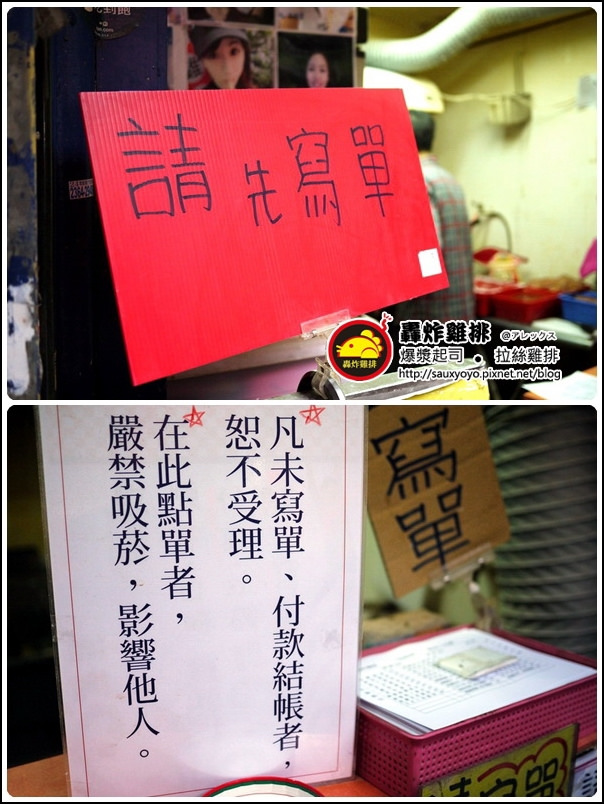 吃到飽
請先寫單
轟炸雞排 @アレックス
轟炸雞排
爆漿起司 • 拉絲雞排
http://sauxyoyo.pixnet.net/blog
凡未寫單、付款結帳者，
恕不受理。
在此點單者，
嚴禁吸菸，影響他人。
寫單
請寫單